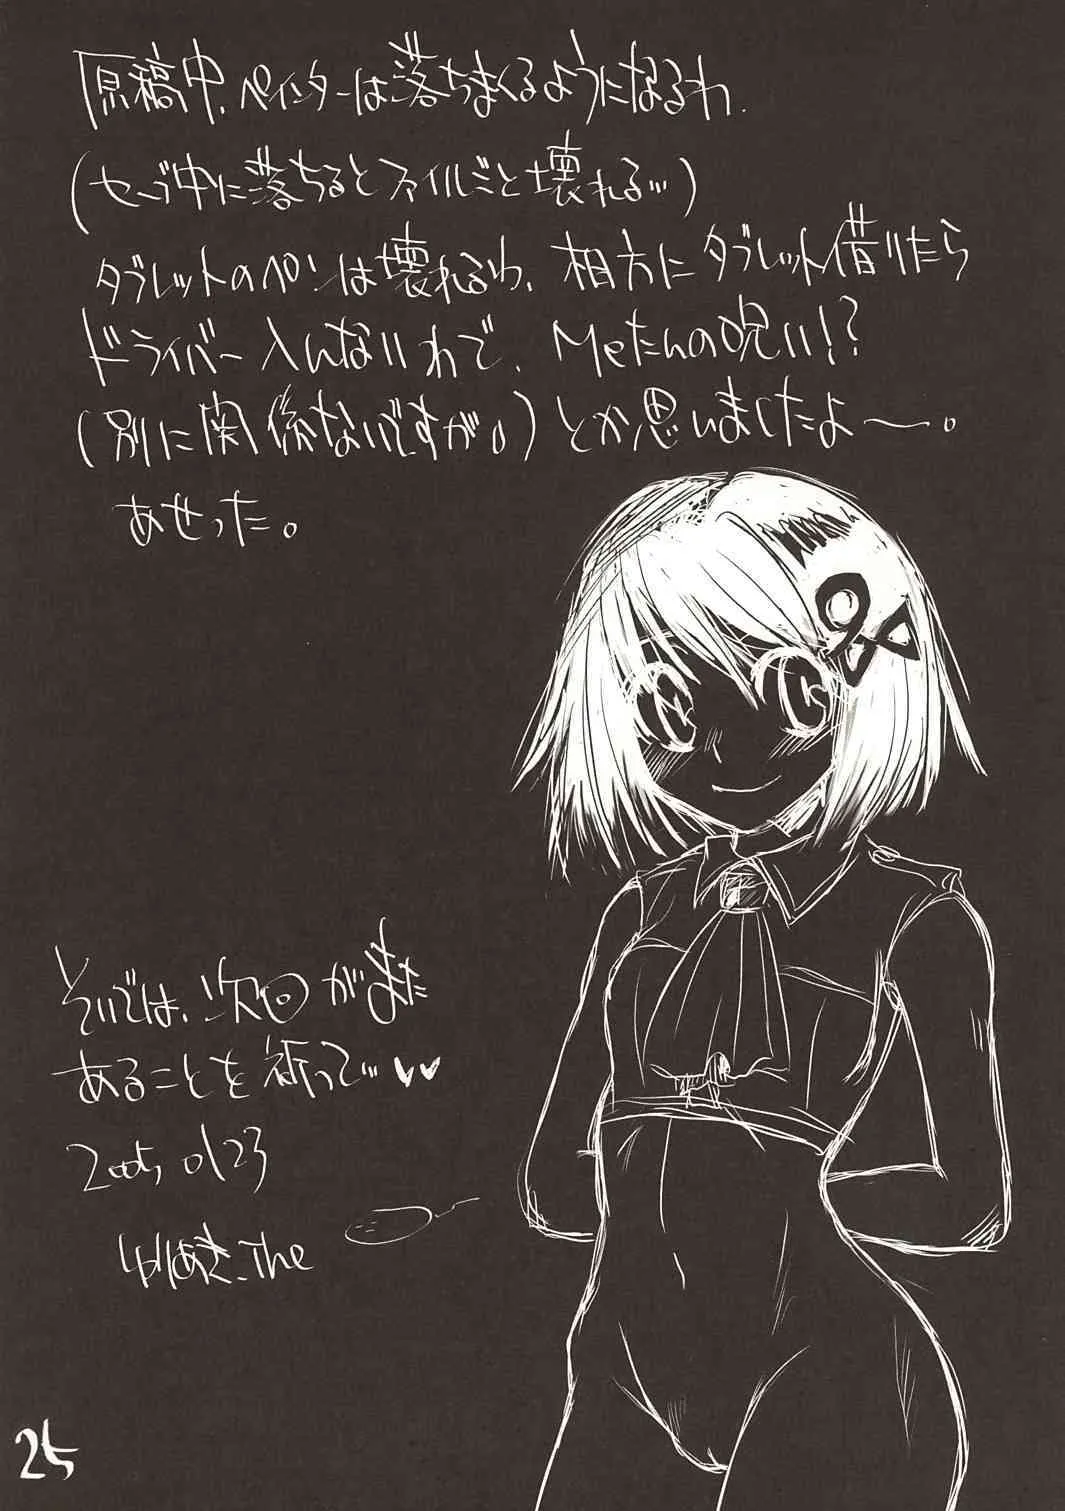 原稿中、ペインターは落ちまくるようになるわ、
(セーブ中に落ちるとファイルごと壊れる…)
タブレットのペンは壊れるわ、相方にタブレット借りたら
ドライバー入んないわで、Meたんの呪い!?
(別に関係ないですが。)とか思いましたよ〜。
あせった。
それでは、次回がまた
あることを祈って…♥♥
2005,01,23
ゆりあき_The
25